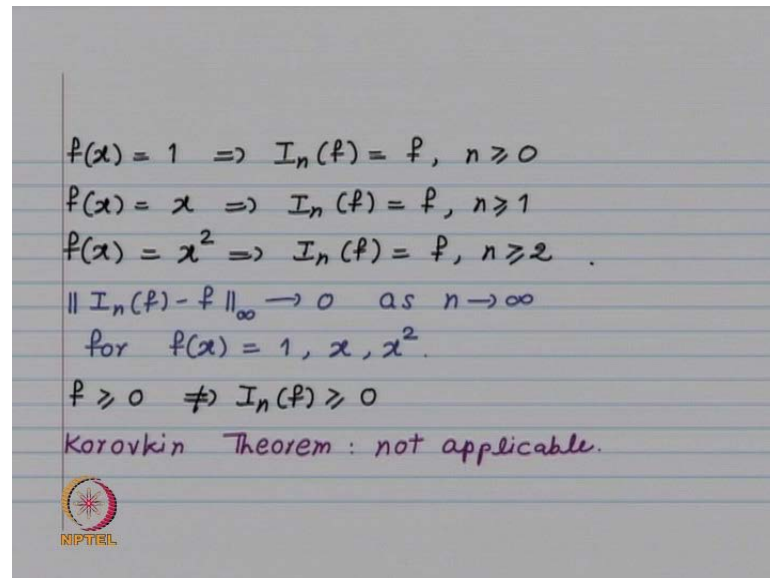 f(x) = 1 => Iₙ(f) = f, n ⩾ 0
f(x) = x => Iₙ(f) = f, n ⩾ 1
f(x) = x² => Iₙ(f) = f, n ⩾ 2 .
‖ Iₙ(f) - f ‖∞ → 0 as n → ∞
for f(x) = 1, x, x².
f ⩾ 0 ⇏ Iₙ(f) ⩾ 0
Korovkin Theorem : not applicable.
NPTEL